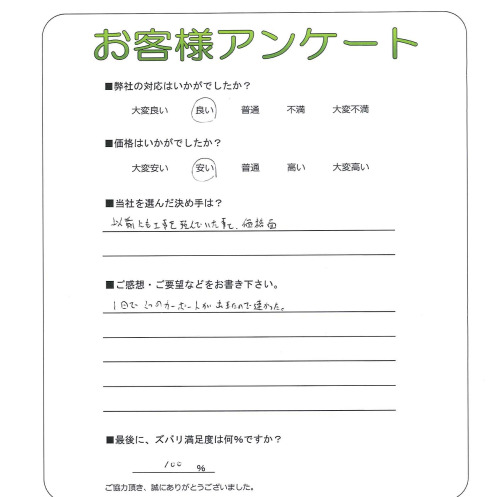 お客様アンケート
■弊社の対応はいかがでしたか?
大変良い 良い 普通 不満 大変不満
■価格はいかがでしたか?
大変安い 安い 普通 高い 大変高い
■当社を選んだ決め手は?
以前にも工事を 価格面
■ご感想・ご要望などをお書き下さい。
1回で2つのカーポートが出来たので速かった。
■最後に、ズバリ満足度は何%ですか?
100 %
ご協力頂き、誠にありがとうございました。